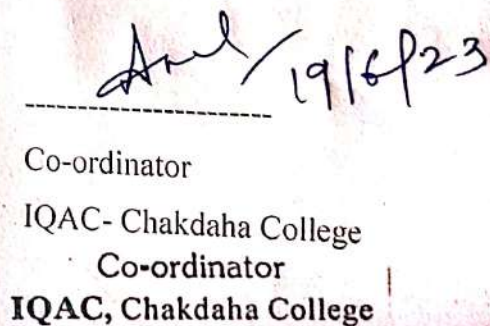 19/6/23
Co-ordinator
IQAC- Chakdaha College
Co-ordinator
IQAC, Chakdaha College